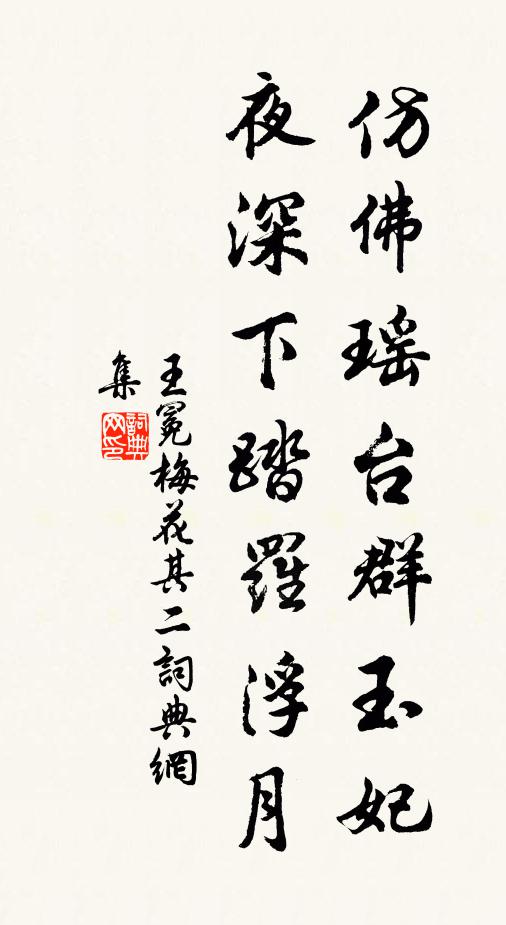 仿佛瑶台群玉妃
夜深下踏羅浮月
王冕梅花其二詞典網
集
詞典网印